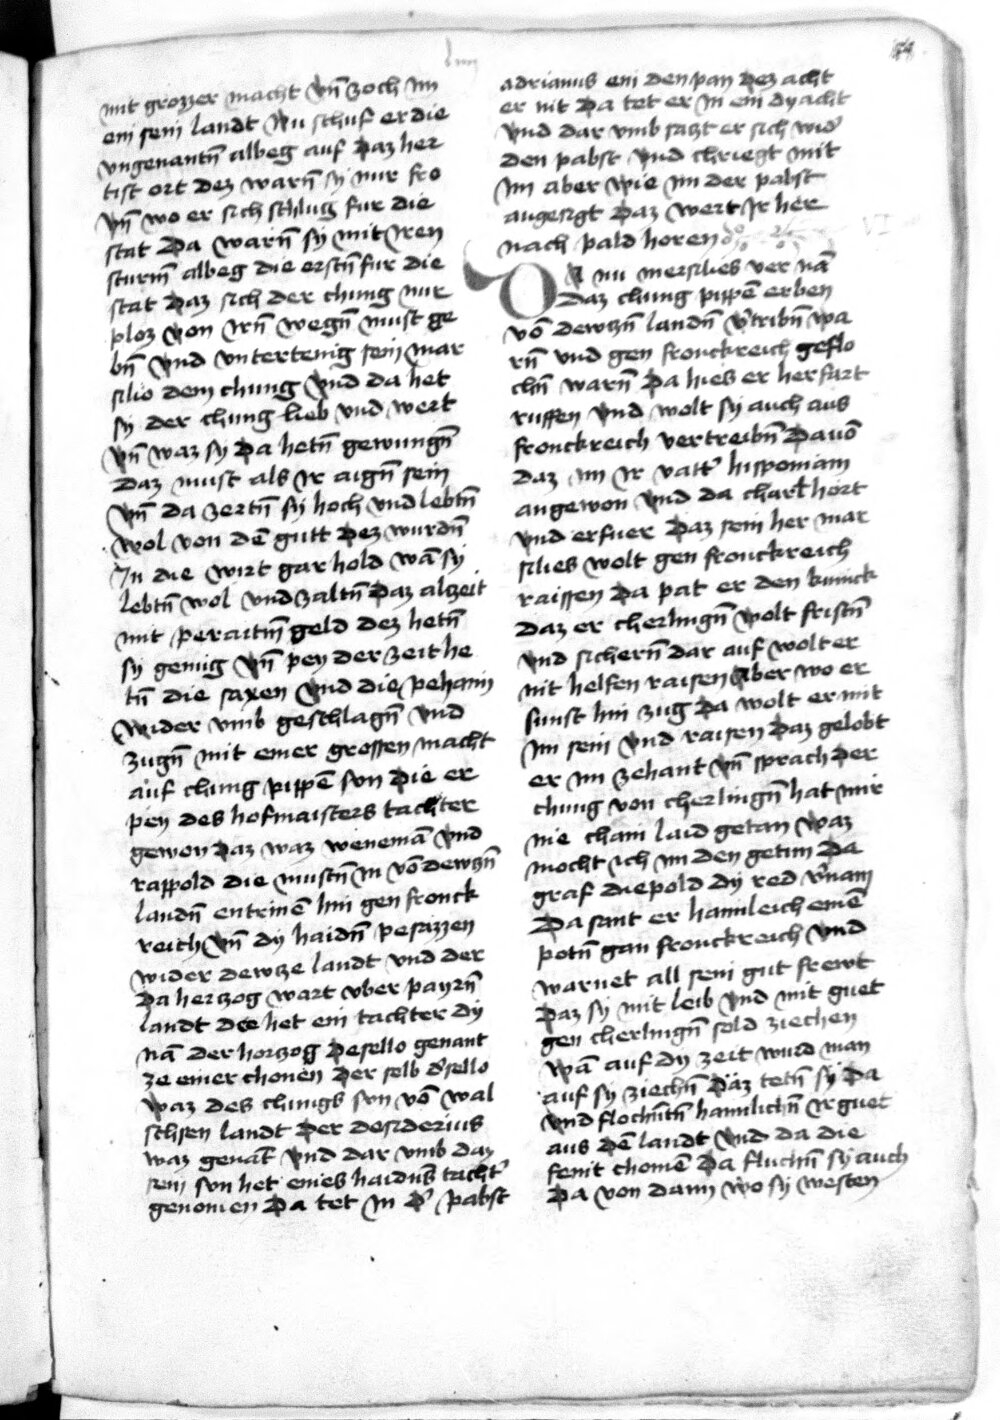 mit grozzer macht vn̄ zoch im
ein sein landt Nu schuf er die
vngenantn̄ albeg auf Daz her
tist ort dez warn̄ sy nur fro
vn̄ wo er sich schlug fur die
stat Da warn̄ sy mit Iren
sturm̄ albeg die erstn̄ fur die
stat Daz sich der chung nur
ploz von Irn̄ wegn̄ must ge
bn̄ vnd vntertenig sein mar
silio dem chung vnd da het
sy der chung lieb vnd wert
vn̄ waz sy Da hetn̄ gewungn̄
Daz must als Ir aign̄ sein
vn̄ da zertn̄ sy hoch vnd lebtn̄
wol von dē gutt Dez wurdn̄
In die wirt gar hold wā sy
lebtn̄ wol vnd zaltn̄ Daz alzeit
mit peraittm̄ geld dez hetn̄
sy genug vn̄ pey der zeit he
tn̄ die saxen vnd die pehaim
wider vmb geschlagn̄ vnd
zugn̄ mit einer grossen macht
auf chung pippē sun Die er
pey des hofmaisters tachter
gewon Daz waz wenemā vnd
rappold die mustn̄ In vō dewczn̄
landn̄ entrinē hin gen fronck
reich vn̄ dy haidn̄ pesizzen
wider dewcze landt vnd der
Da herczog wart vber payrn̄
landt der het ein tachter dy
nā der horczog Desello genant
ze einer chonen Der selb d'sello
waz des chungs sun vō wal
schsen landt Der desiderius
waz genāt vnd dar vmb daz
sein sun het eines haidns̄ tacht'
genomen Da tet In d' pabst
adrianus ein den pan Dez acht
er nit Da tet er In ein dy acht
vnd dar vmb saczt er sich wid'
den pabst vnd chriegt mit
Im aber wie im der pabst
angesigt Daz wert Ir her
nach pald horen
Da nu mersilies ver nā
Daz chung pippē erben
vō dewczn̄ landn̄ v'tribn̄ wa
rn̄ vnd gen fronckreich geflo
chn̄ warn̄ Da hies er herfart
ruffen vnd wolt sy auch aus
fronckreich vertreibn̄ Dauō
daz im Ir vatt' hisponiam
angewon vnd da charl hort
vnd erfuer Daz sein her mar
silies wolt gen fronckreich
raissen Da pat er den kunick
daz er cherlingn̄ wolt fristn̄
vnd sichern̄ dar auf wolt er
nit helfen raisen Aber wo er
sunst hin zug Da wolt er mit
Im sein vnd raisen Daz gelobt
er im zehant vn̄ sprach Der
chung von cherlingn̄ hat mir
nie chain laid getan waz
mocht ich im den getun Da
graf diepold dy red v'nam
Da sant er hainleich einē
potn̄ gan fronckreich vnd
warnet all sein gut frewt
Daz sy mit leib vnd mit guet
gen cherlingn̄ sold ziechen
wā auf dy zeit wurd man
auf sy ziechn̄ Daz tetn̄ sy Da
vnd flochn̄tn̄ hainlichn̄ Ir guet
aus dē landt vnd da die
feint chomē Da fluchn̄ sy auch
Da von dann wo sy westen